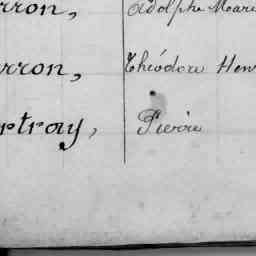 rron, Adolphe Mari
rron, Théodore Hen
rtray, Pierre